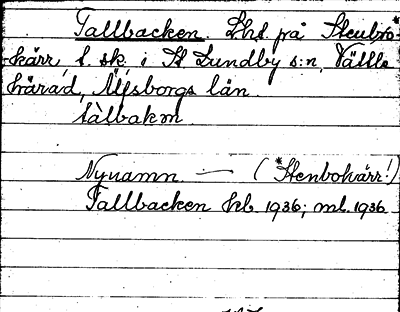 Tallbacken. Lhs. på Stenbro*-
kärr f. sk. i St. Lundby s:n, Vättle
härad, Älvsborgs län.
tàlbakɐn
Nynamn — (*Stenbokärr!)
Tallbacken kb. 1936; ml. 1936